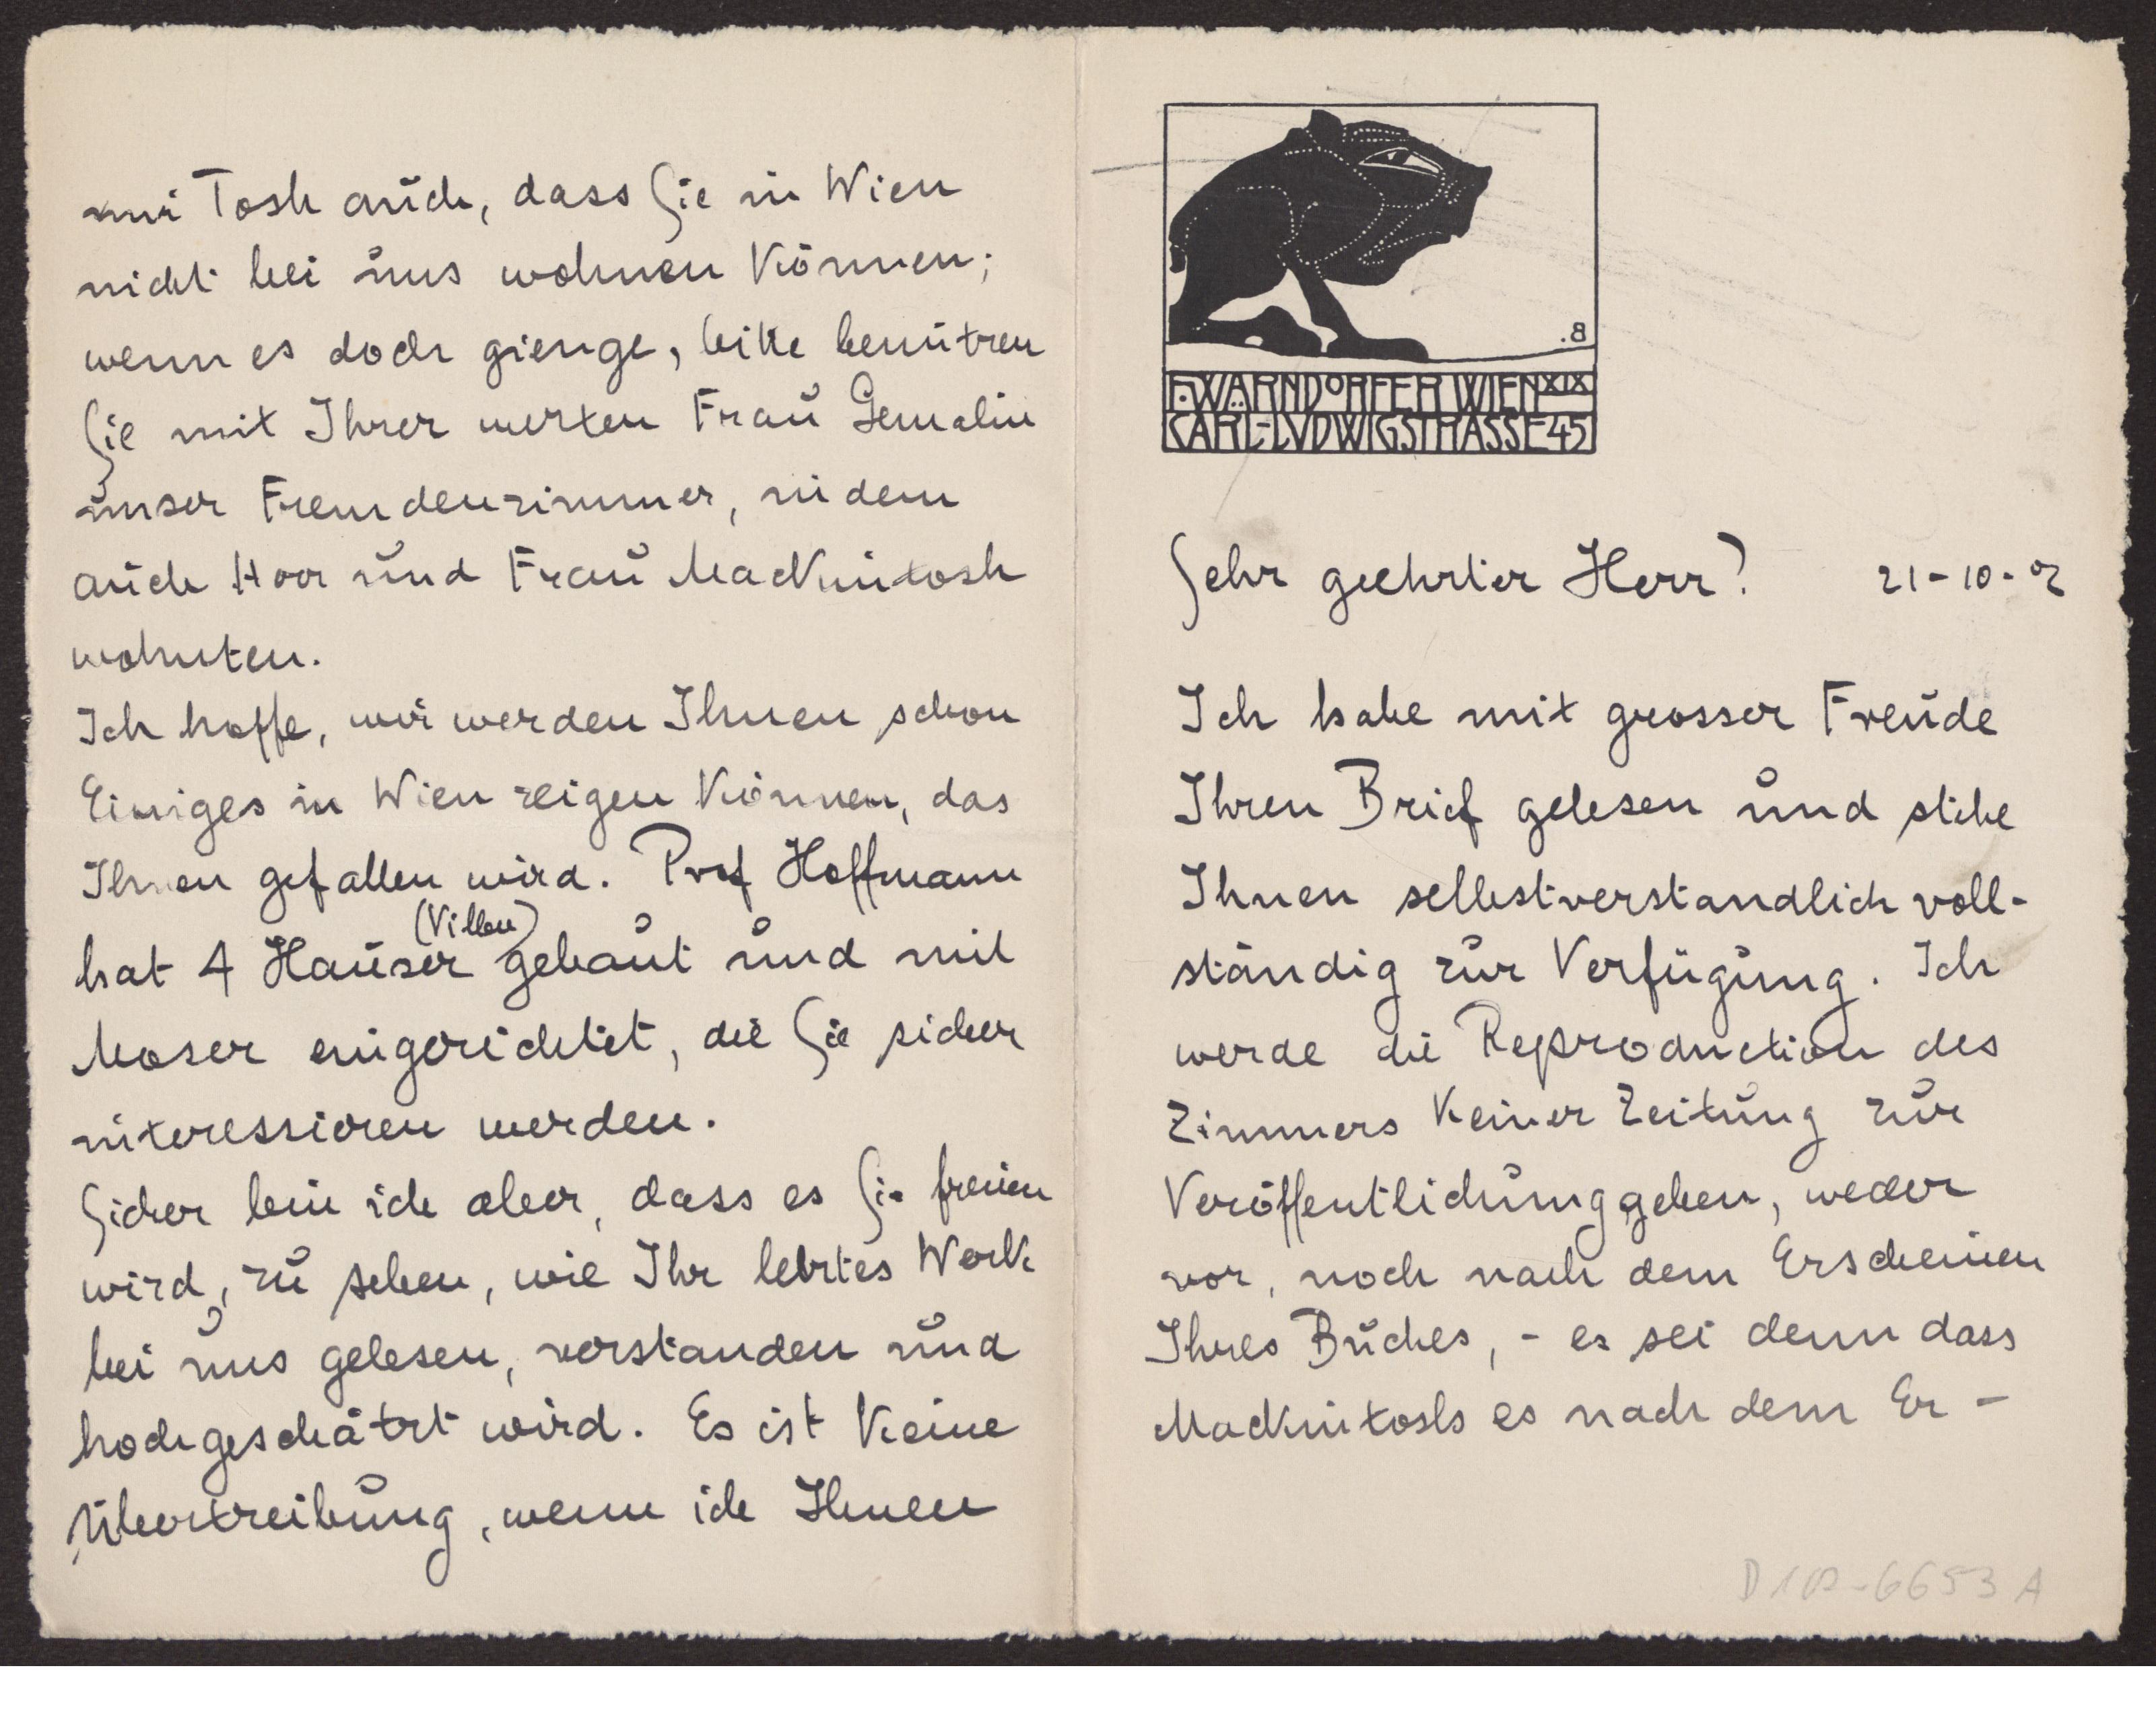 .8
F. WÄRNDORFER WIEN XIX
CARL-LVDWIGSTRASSE 45
Sehr geehrter Herr! 21-10-02
Ich habe mit grosser Freude
Ihren Brief gelesen und stehe
Ihnen selbstverstandlich voll-
ständig zur Verfügung. Ich
werde die Reproduction des
Zimmers keiner Zeitung zur
Veröffentlichung geben, weder
vor, noch nach dem Erscheinen
Ihres Buches, - es sei denn dass
Mackintosh es nach dem Er-
D102-6653 A
mir Tosh auch, dass Sie in Wien
nicht bei uns wohnen können;
wenn es doch gienge, bitte benützen
Sie mit Ihrer werten Frau Gemalin
unser Fremdenzimmer, in dem
auch Herr und Frau Mackintosh
wohnten.
Ich hoffe, wir werden Ihnen schon
Einiges in Wien zeigen können, das
Ihnen gefallen wird. Prof Hoffmann
hat 4 Häuser (Villen) gebaut und mit
Moser eingerichtet, die Sie sicher
interessieren werden.
Sicher bin ich aber, dass es Sie freuen
wird, zu sehen, wie Ihr letztes Werk
bei uns gelesen, verstanden und
hochgeschätzt wird. Es ist keine
Übertreibung, wenn ich Ihnen